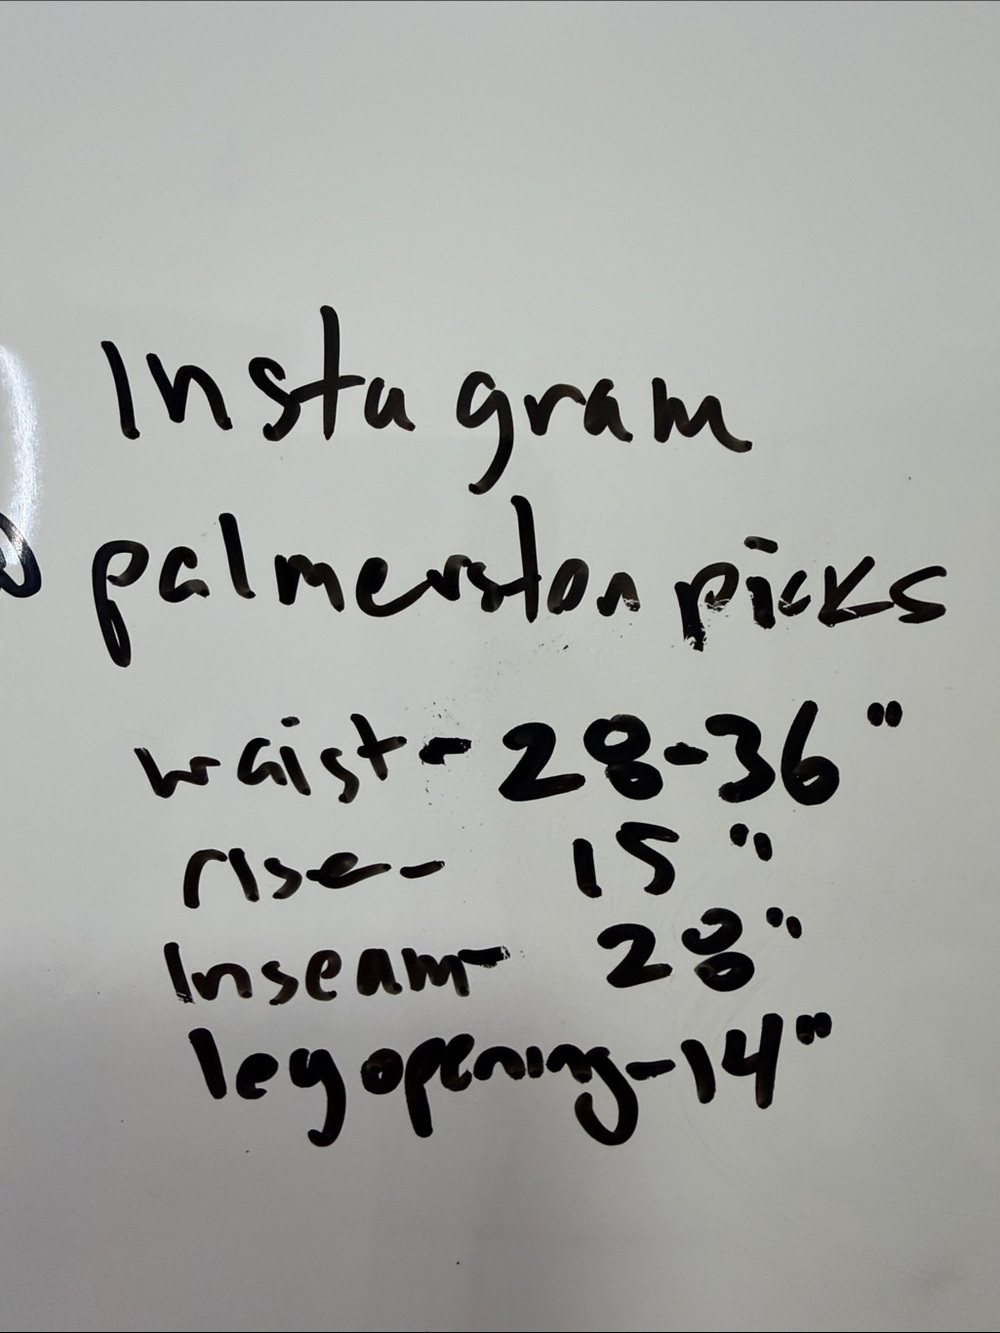 Instagram
palmerston picks
waist - 28-36"
rise - 15"
Inseam - 28"
leg opening - 14"